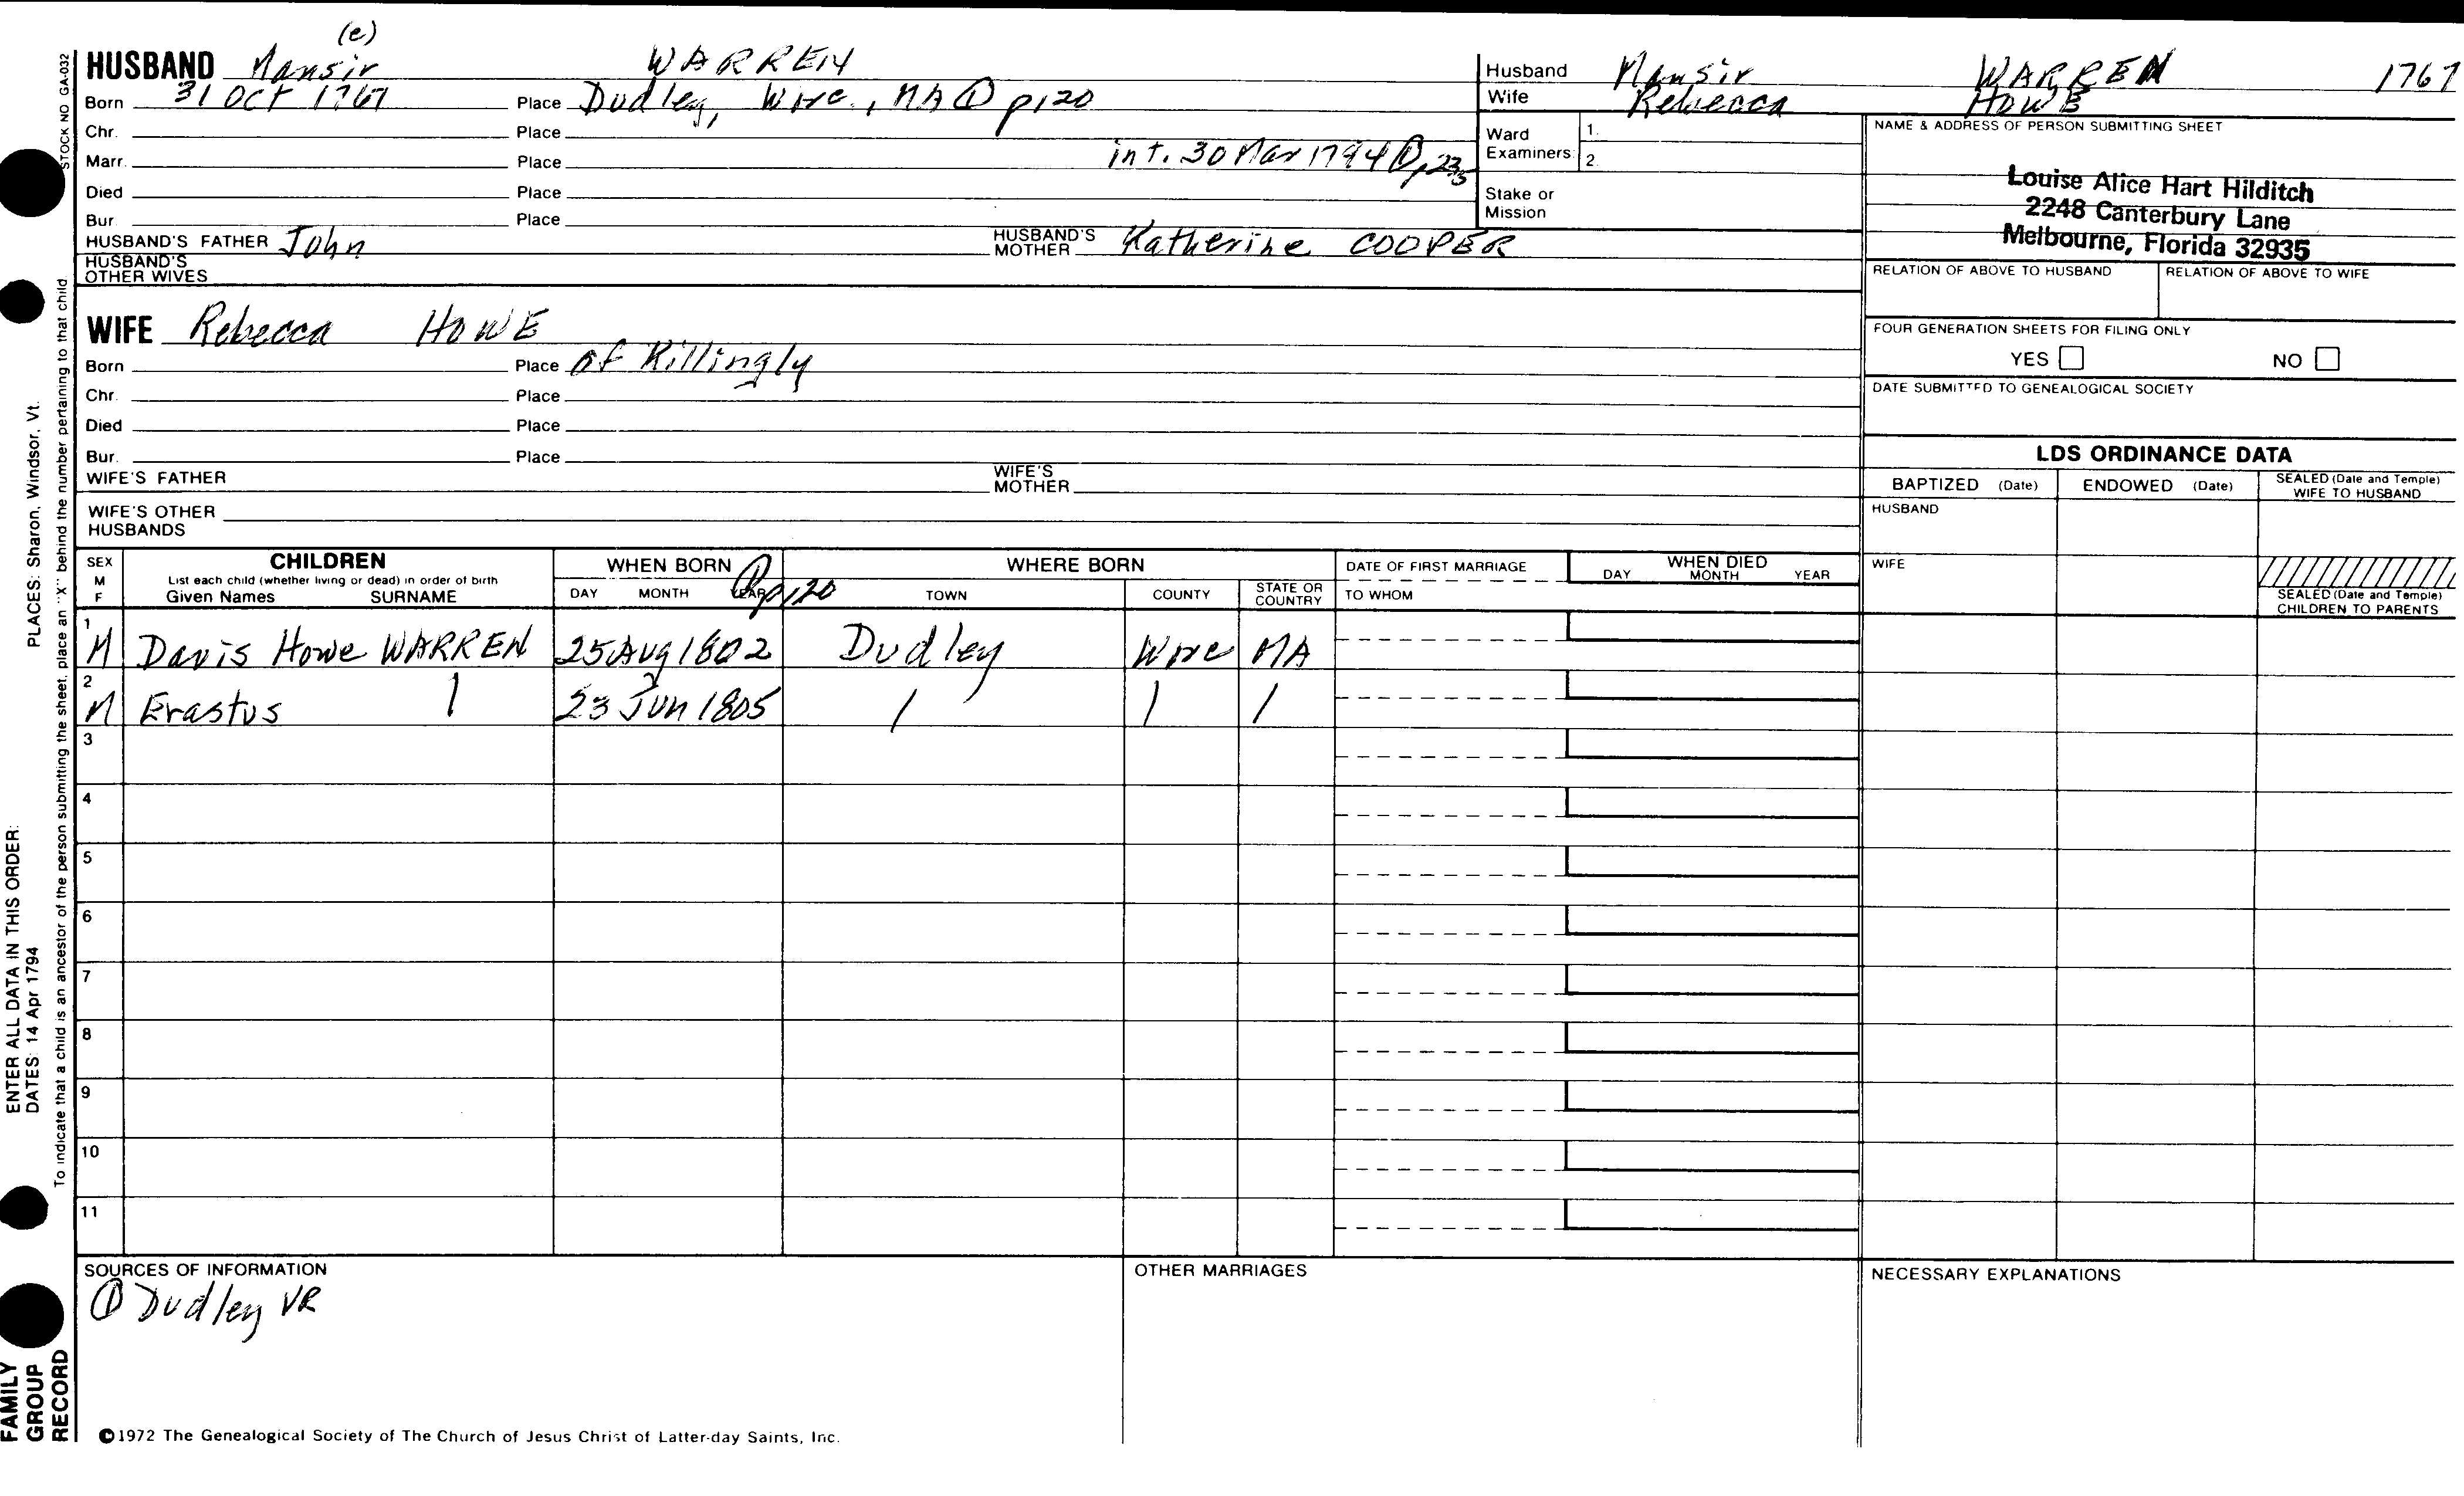 (e)
HUSBAND Mansir WARREN
Born 31 Oct 1767 Place Dudley, Worc., MA ① p120
Chr. Place
Marr. Place int. 30 Mar 1794 ① p,235
Died Place
Bur. Place
HUSBAND'S FATHER John HUSBAND'S MOTHER Katherine COOPER
HUSBAND'S OTHER WIVES
WIFE Rebecca HOWE
Born Place of Killingly
Chr. Place
Died Place
Bur. Place
WIFE'S FATHER WIFE'S MOTHER
WIFE'S OTHER HUSBANDS
Husband Mansir WARREN 1767
Wife Rebecca HOWE
Ward Examiners: 1.
2.
Stake or Mission
NAME & ADDRESS OF PERSON SUBMITTING SHEET
Louise Alice Hart Hilditch
2248 Canterbury Lane
Melbourne, Florida 32935
RELATION OF ABOVE TO HUSBAND RELATION OF ABOVE TO WIFE
FOUR GENERATION SHEETS FOR FILING ONLY
YES NO
DATE SUBMITTED TO GENEALOGICAL SOCIETY
LDS ORDINANCE DATA
BAPTIZED (Date) ENDOWED (Date) SEALED (Date and Temple) WIFE TO HUSBAND
HUSBAND
WIFE
SEALED (Date and Temple) CHILDREN TO PARENTS
SEX M F
CHILDREN
List each child (whether living or dead) in order of birth
Given Names SURNAME
WHEN BORN ① p120
DAY MONTH YEAR
WHERE BORN
TOWN COUNTY STATE OR COUNTRY
DATE OF FIRST MARRIAGE
TO WHOM
WHEN DIED
DAY MONTH YEAR
1 M Davis Howe WARREN 25 Aug 1802 Dudley Worc MA
2 M Erastus | 23 Jun 1805 / | /
3
4
5
6
7
8
9
10
11
SOURCES OF INFORMATION
① Dudley VR
OTHER MARRIAGES
NECESSARY EXPLANATIONS
©1972 The Genealogical Society of The Church of Jesus Christ of Latter-day Saints, Inc.
STOCK NO GA-032
To indicate that a child is an ancestor of the person submitting the sheet, place an "X" behind the number pertaining to that child.
ENTER ALL DATA IN THIS ORDER:
DATES: 14 Apr 1794 PLACES: Sharon, Windsor, Vt.
FAMILY
GROUP
RECORD